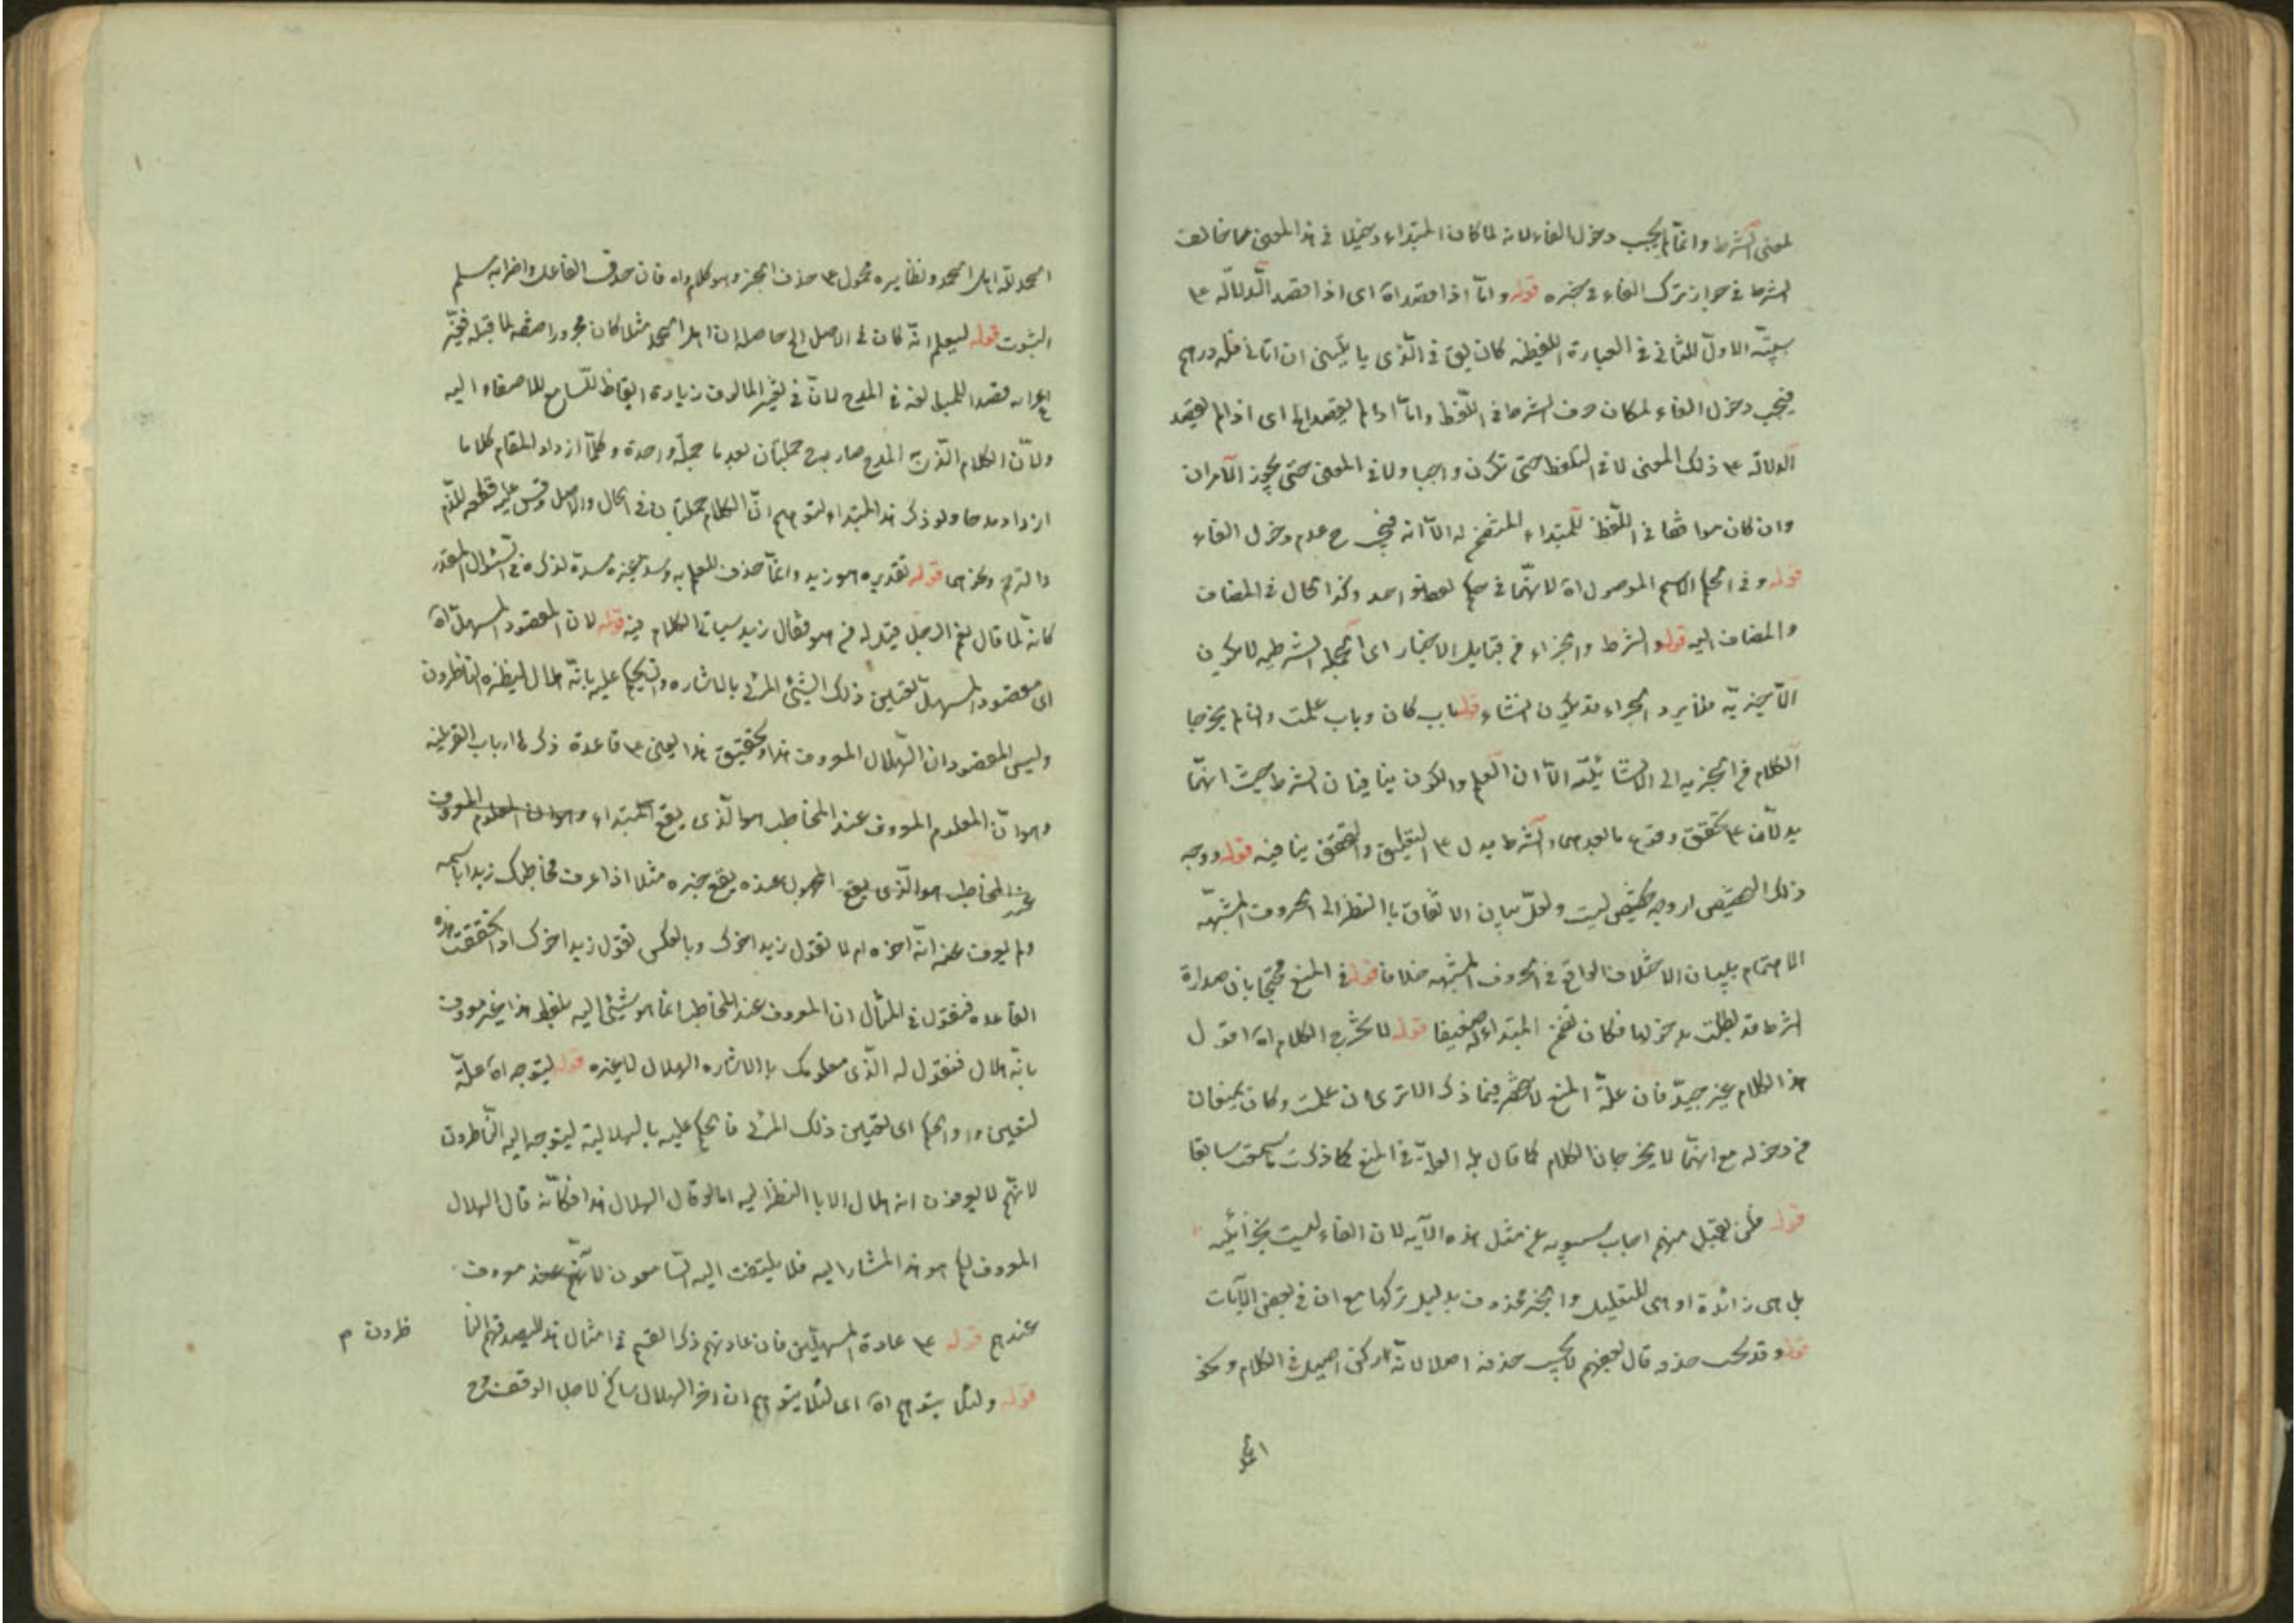 لمعنى الشرط وانما لم يجب دخول الفاء لانه لما كان المبتداء دخيلا في هذا المعنى مما خالف
الشرط في جواز ترك الفاء في خبره قوله واما اذا قصد اه اى اذا قصد الدلالة ع
سببية الاول للثانى في العبارة اللفظية كان يق في الذى ياتينى ان اتانى فله درهم
فيجب دخول الفاء لمكان حرف الشرط في اللفظ واما اذا لم يقصد الخ اى اذا لم يقصد
الدلالة ع ذلك المعنى لا في التلفظ حتى تكون واجبا ولا في المعنى حتى يجوز الامران
وان كان موافقا في اللفظ للمبتداء المتضمن له الا انه فيجب ح عدم دخول الفاء
قوله وفي الحكم الاسم الموصول اه لانهما في حكم لفظ واحد وكذا الحال في المضاف
والمضاف اليه قوله والشرط والجزاء من قبيل الاخبار اى الجملة الشرطية لا يكون
الا خبرية فلا يرد الجزاء قد يكون انشاء قوله باب كان وباب علمت وان لم يخرجا
الكلام من الخبرية الى الانشائية الا ان العلم والكون ينافيان الشرط حيث انهما
يدلان ع تحقق وقوع ما بعدهما والشرط يدل ع التعليق والتحقق ينافيه قوله ووجه
ذلك التخصيص اه وجه تخصيص ليت ولعل ببيان الاتفاق با النظر الى الحروف المشبهة
الاهتمام ببيان الاختلاف الواقع في الحروف المشبهة خلافا قوله في المنع محتجا بان صدارة
الشرط قد بطلت بدخولها فكان تضمن المبتداء له ضعيفا قوله لا يخرج الكلام اه اقول
هذا الكلام غير جيد فان علة المنع لا ينحصر فيما ذكر الا ترى ان علمت وكان يمنعان
من دخوله مع انهما لا يخرجان الكلام كما قال بل العلة في المنع كما ذكرت ما سبقت سابقا
قوله فلن يقبل منهم اجاب سيبويه عن مثل هذه الآية لان الفاء ليست بجزائية
بل هى زائدة او هى للتعليل والخبر محذوف بدليل تركها مع ان في بعض الآيات
قوله وقد يجب حذفه قال بعضهم لا يجب حذفه اصلا لانه ركن اصيل في الكلام ونحو
الحمد
الحمد لله اهل الحمد ونظايره محمول ع حذف الخبر وهو كلام واه فان حذف الفاعل واضرابه مسلم
الثبوت قوله ليعلم انه كان في الاصل الخ حاصله ان اهل الحمد مثلا كان مجرورا صفة لما قبله فغير
اعرابه قصدا للمبالغة في المدح لان في تغيير المالوف زيادة ايقاظ للسامع للاصغاء اليه
ولان الكلام الذى المدح صار به ح جملتان بعد ما جملة واحدة وكلما ازداد المقام كلاما
ازداد مدحا ولو ذكر هذا المبتداء لتوهم ان الكلام جملتان في الحال والاصل وقس عليه قطعه للذم
والترحم ونحوهما قوله تقديره هو زيد وانما حذف للعلم به وسد غيره مسده لذكره في السؤال المقدر
كانه لما قال نعم الرجل قيل له من هو فقال زيد سياتى الكلام فيه قوله لان المقصود المستهل اه
اى مقصود المستهل تعيين ذلك الشيئ المرئى بالاشاره والحكم عليه بانه هلال لينظره الناظرون
وليس المقصود ان الهلال المعروف هذا وتحقيق هذا يبنى ع قاعدة ذكرها ارباب العربيه
وهو ان المعلوم المعروف عند المخاطب هو الذى يقع المبتداء وهو ان المعلوم المعروف
عند المخاطب هو الذى يقع المجهول عنده يقع خبره مثلا اذا عرف مخاطبك زيدا باسمه
ولم يعرف عنه انه اخوه ام لا تقول زيد اخوك وبالعكس تقول زيد اخوك اذا تحققت هذه
القاعده فنقول في المثال ان المعروف عند المخاطب انما هو شيئ اليه بلفظ هذا غير معروف
بانه هلال فنقول له الذى معلومك با الاشاره الهلال لا غيره قوله ليتوجه اه علة
لتعيين اواوالحكم اى تعيين ذلك المرئى فالحكم عليه بالهلالية ليتوجه اليه الناظرون
لانهم لا يعرفون انه هلال الا با النظر اليه اما لو قال الهلال هذا فكانه قال الهلال
المعروف لكم هو هذا المشار اليه فلا يلتفت اليه السامعون لانهم عند معروف
عندهم قوله ع عادة المستهلين فان عادتهم ذكر القسم في امثال هذا ليصدقهم النا
ظرون م
قوله ولئلا يتوهم اه اى لئلا يتوهم ان اخر الهلال ساكن لاجل الوقف ح